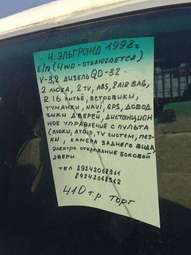 Н. ЭЛЬГРАНД 1998г.
б/п (4WD - отключается)
V-3,2 ДИЗЕЛЬ QD-32
2 ЛЮКА, 2 TV, ABS, 2 AIR BAG,
R 16 ЛИТЬЁ, ВЕТРОВИКИ,
ТУМАНКИ, NAVI, GPS, ДОВОД
ЧИКИ ДВЕРЕЙ, ДИСТАНЦИОН
НОЕ УПРАВЛЕНИЕ С ПУЛЬТА
(ЛЮКИ, TV SYSTEM,
КАМЕРА ЗАДНЕГО ВИДА,
ЭЛЕКТРО ОТКРЫВАНИЕ БОКОВОЙ
ДВЕРИ
ТЕЛ
410 т.р ТОРГ